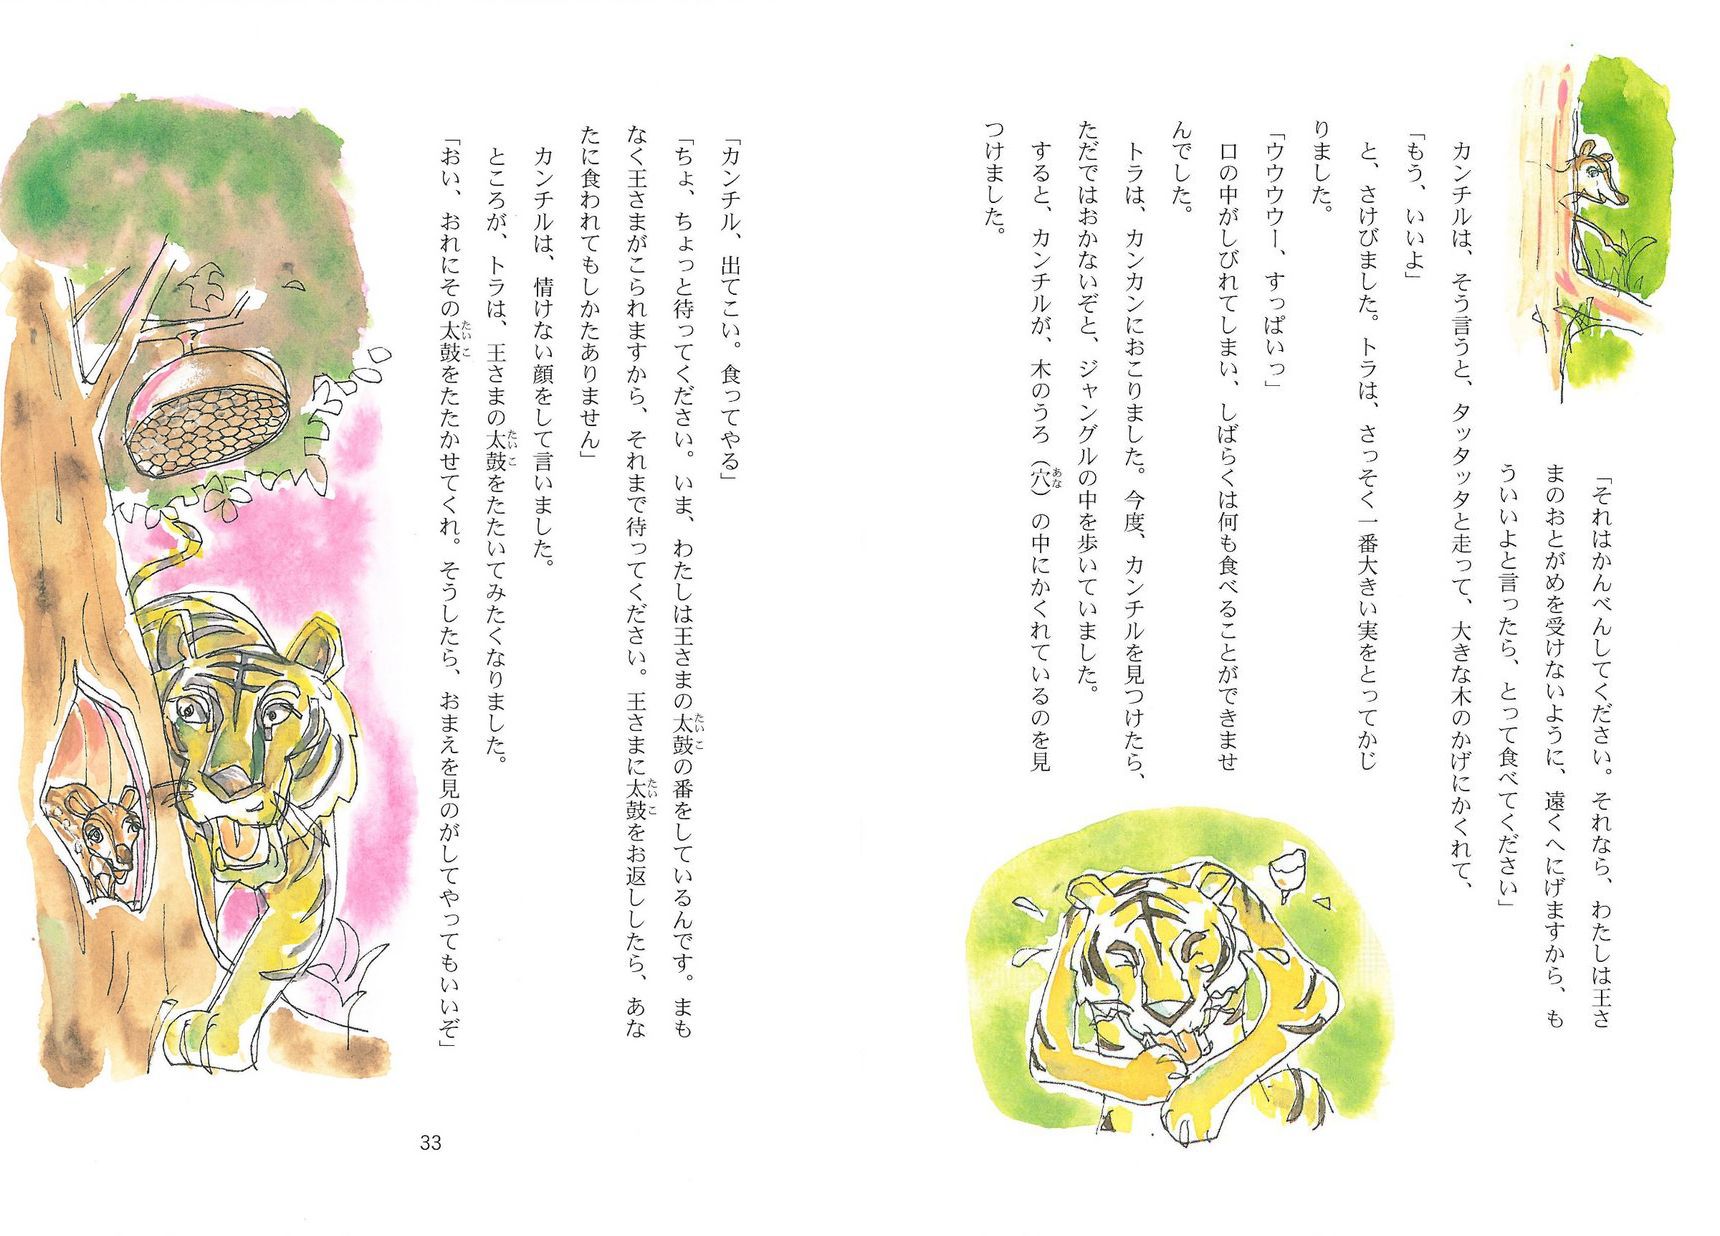 「それはかんべんしてください。それなら、わたしは王さ
まのおとがめを受けないように、遠くへにげますから、も
ういいよと言ったら、とって食べてください」
カンチルは、そう言うと、タッタッタと走って、大きな木のかげにかくれて、
「もう、いいよ」
と、さけびました。トラは、さっそく一番大きい実をとってかじ
りました。
「ウウウウー、すっぱいっ」
口の中がしびれてしまい、しばらくは何も食べることができませ
んでした。
トラは、カンカンにおこりました。今度、カンチルを見つけたら、
ただではおかないぞと、ジャングルの中を歩いていました。
すると、カンチルが、木のうろ（穴）の中にかくれているのを見
つけました。
「カンチル、出てこい。食ってやる」
「ちょ、ちょっと待ってください。いま、わたしは王さまの太鼓の番をしているんです。まも
なく王さまがこられますから、それまで待ってください。王さまに太鼓をお返ししたら、あな
たに食われてもしかたありません」
カンチルは、情けない顔をして言いました。
ところが、トラは、王さまの太鼓をたたいてみたくなりました。
「おい、おれにその太鼓をたたかせてくれ。そうしたら、おまえを見のがしてやってもいいぞ」
33